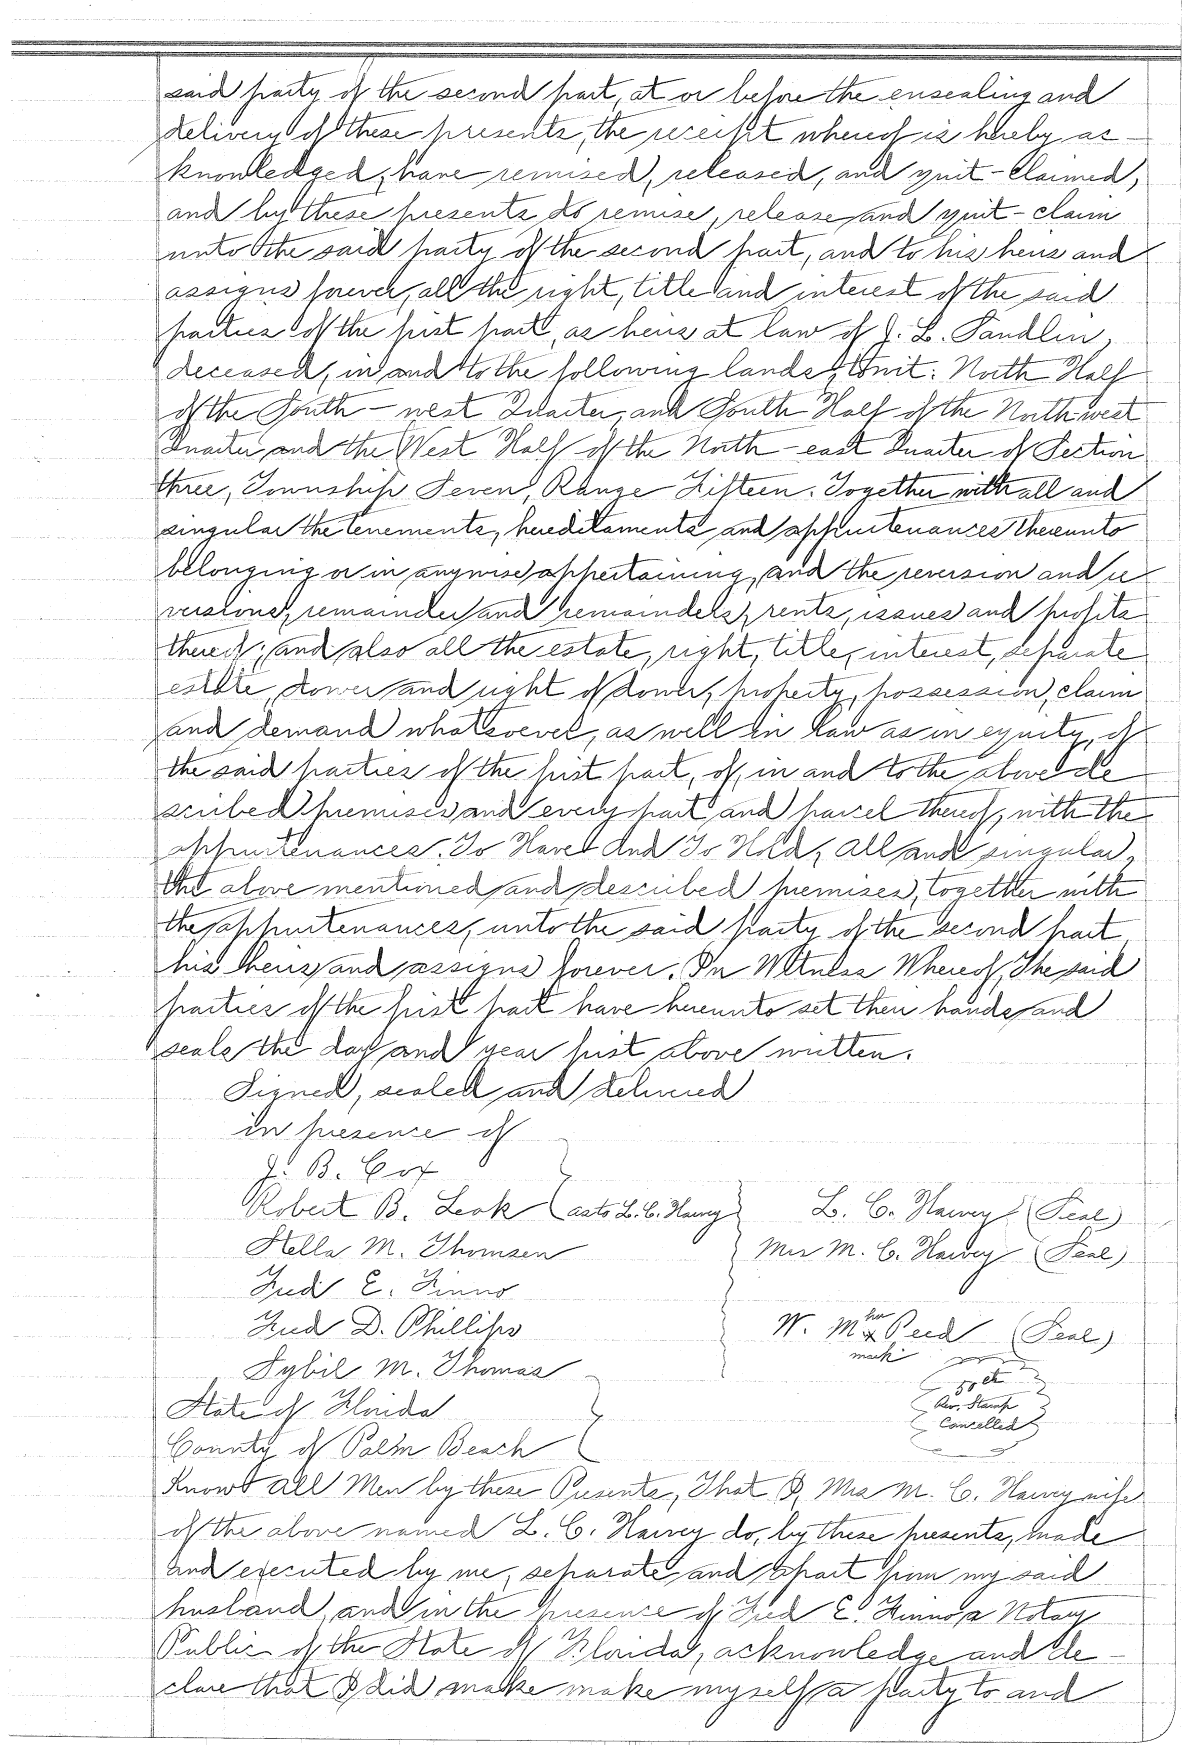 said party of the second part, at or before the ensealing and
delivery of these presents, the receipt whereof is hereby ac-
knowledged, have remised, released, and quit-claimed,
and by these presents do remise, release and quit-claim
unto the said party of the second part, and to his heirs and
assigns forever, all the right, title and interest of the said
parties of the first part, as heirs at law of J. L. Sandlin,
deceased, in and to the following lands, towit: North Half
of the South-west Quarter, and South Half of the North west
Quarter, and the West Half of the North-east Quarter of Section
three, Township Seven, Range Fifteen. Together with all and
singular the tenements, hereditaments and appurtenances thereunto
belonging or in anywise appertaining, and the reversion and re
versions, remainder and remainders, rents, issues and profits
thereof; and also all the estate, right, title, interest, separate
estate, dower and right of dower, property, possession, claim
and demand whatsoever, as well in law as in equity, of
the said parties of the first part, of, in and to the above de
scribed premises and every part and parcel thereof, with the
appurtenances. To Have And To Hold, All and singular,
the above mentioned and described premises, together with
the appurtenances, unto the said party of the second part,
his heirs and assigns forever. In Witness Whereof, The said
parties of the first part have hereunto set their hands and
seals the day and year first above written.
Signed, sealed and delivered
in presence of
J. B. Cox
Robert B. Leak (as to L. C. Harvey L. C. Harvey (Seal)
Stella M. Thomsen Mrs M. C. Harvey (Seal)
Fred E. Finno
Fred D. Phillips W. M. her x Peed (Seal)
mark
Sybil M. Thomas 50 ct
State of Florida Rev. Stamp
Cancelled
County of Palm Beach
Know All Men by these Presents, That I, Mrs M. C. Harvey wife
of the above named L. C. Harvey do, by these presents, made
and executed by me, separate and apart from my said
husband, and in the presence of Fred E. Finno a Notary
Public of the State of Florida, acknowledge and de-
clare that I did make make myself a party to and